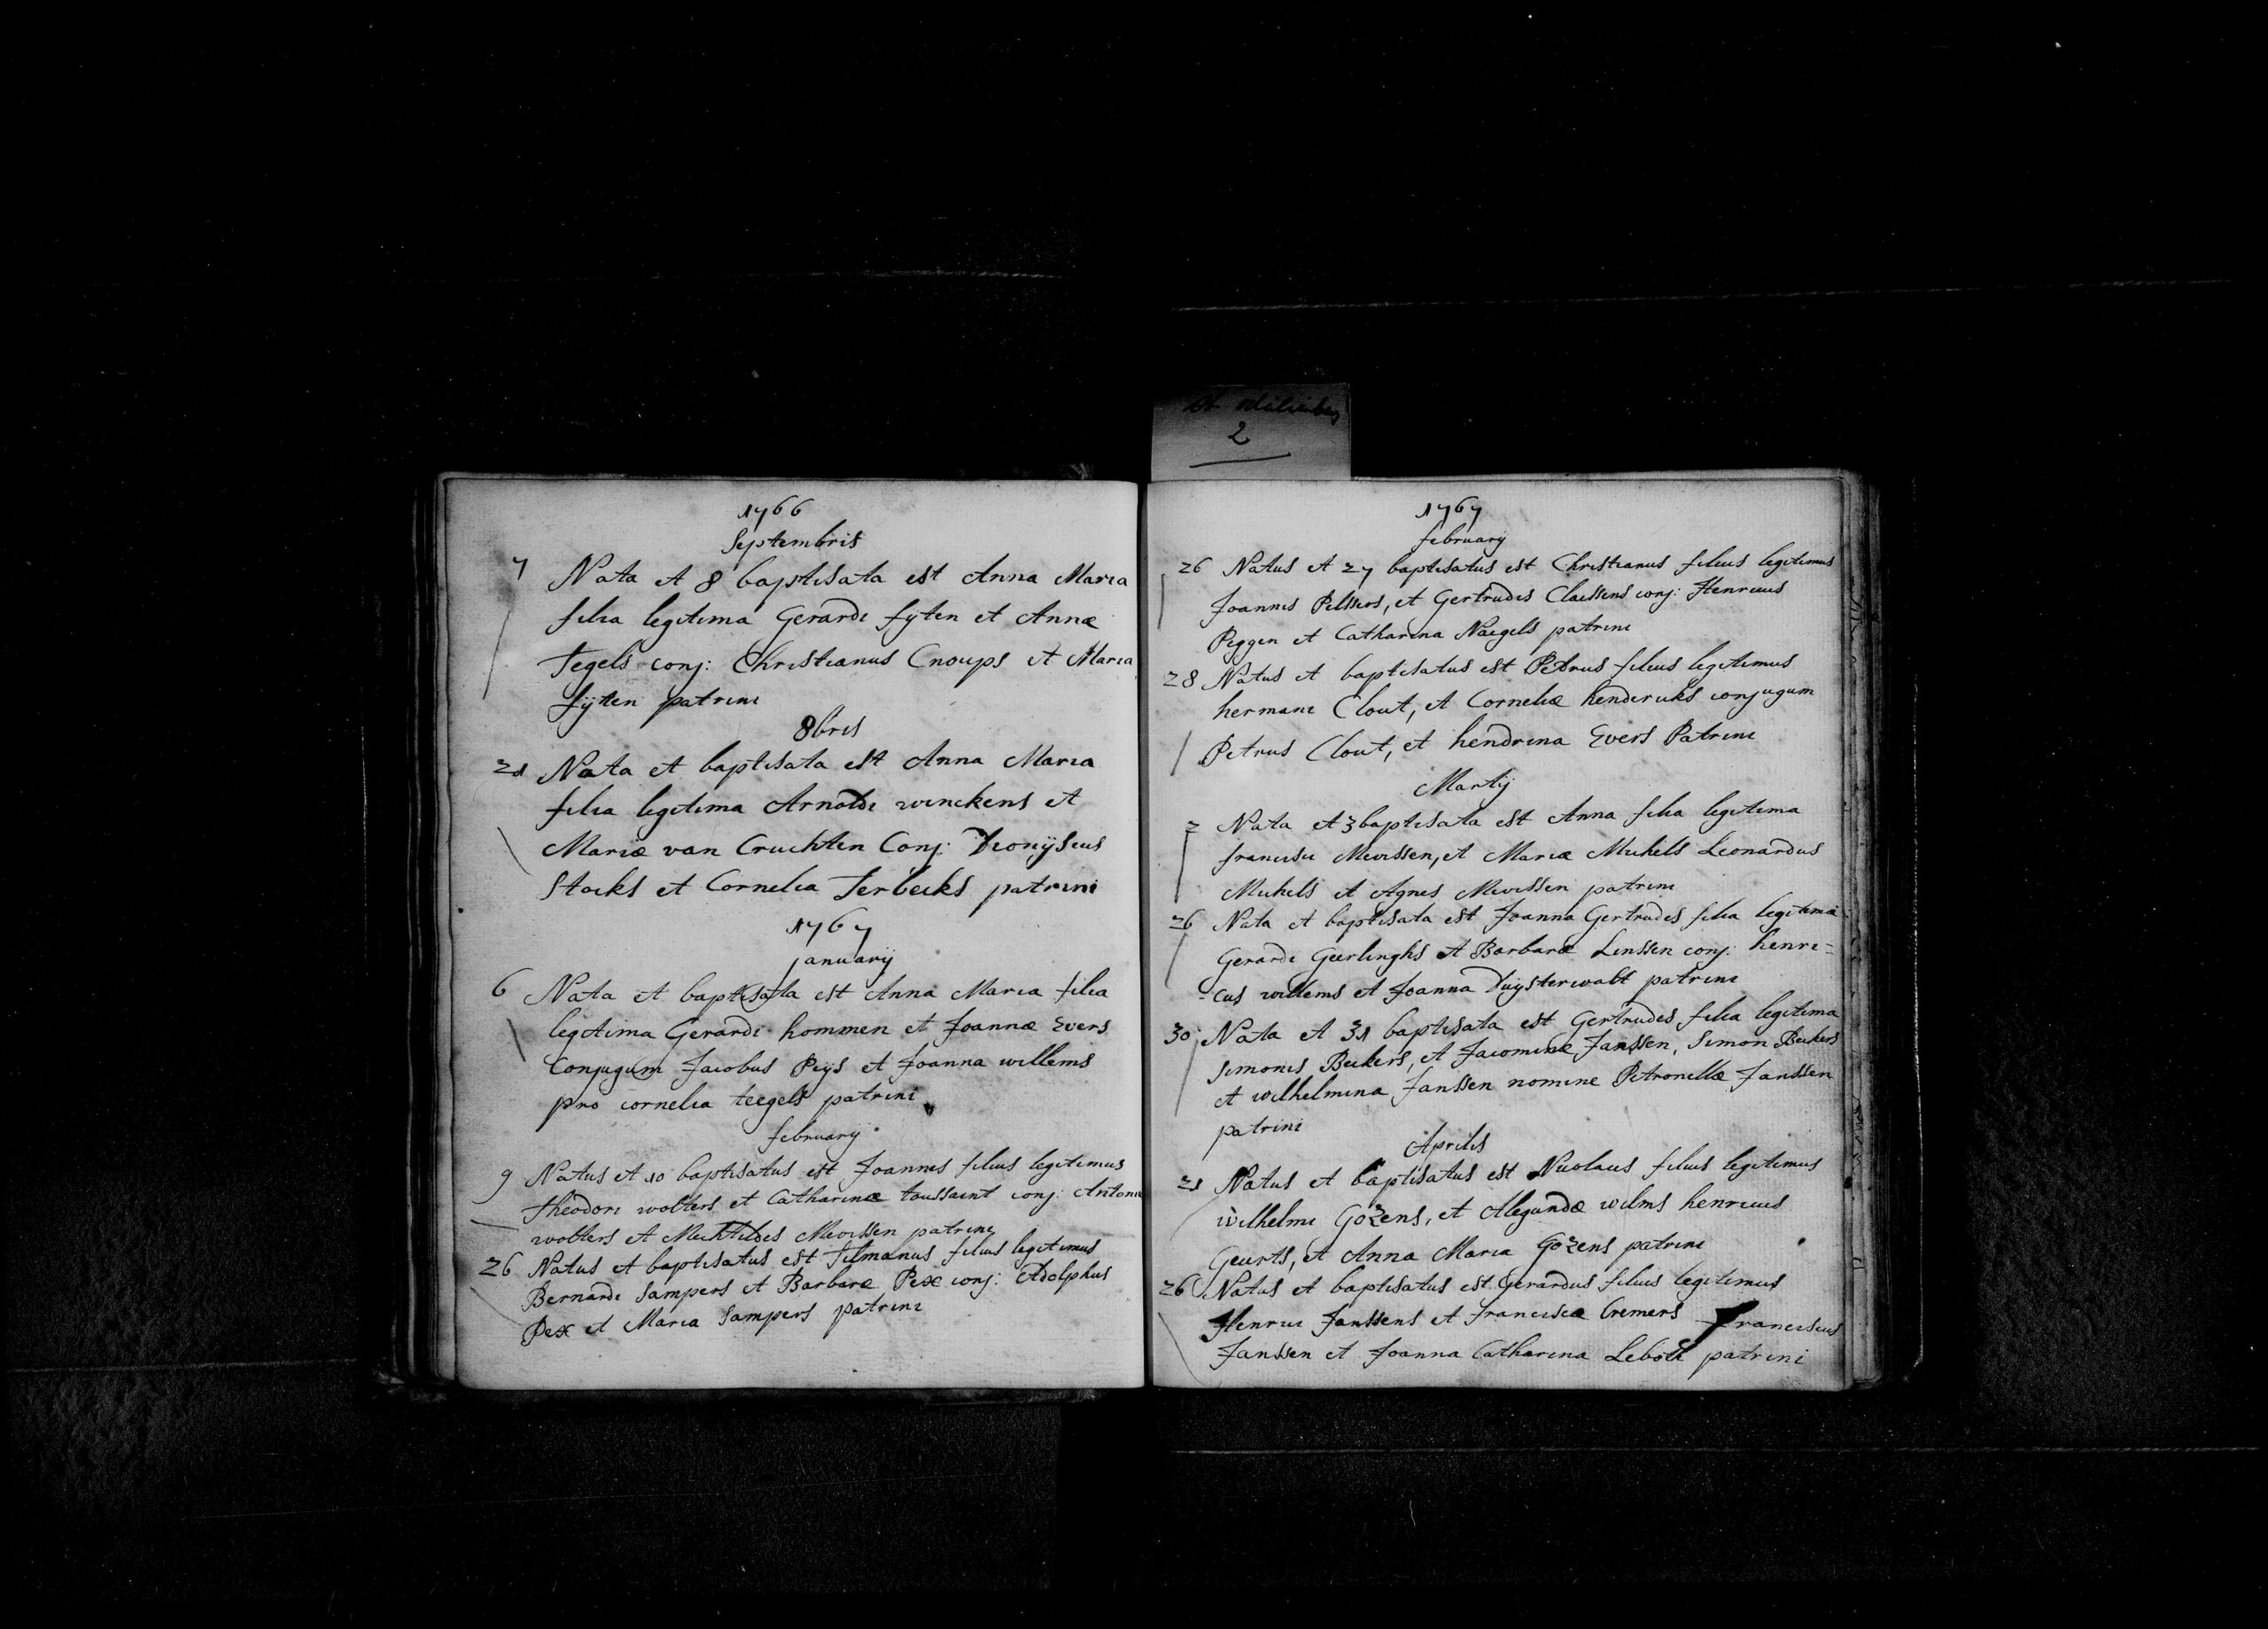 St Odilienberg
2
1766
Septembris
7 Nata et 8 baptisata est Anna Maria
filia legitima Gerardi fyten et Annæ
Tegels conj: Christianus Cnoups et Maria
fÿten patrini
8bris
21 Nata et baptisata est Anna Maria
filia legitima Arnoldi winckens et
Mariæ van Cruchten Conj: Dionÿsius
Stocks et Cornelia Terbecks patrini
1767
januarij
6 Nata et baptisata est Anna Maria filia
legitima Gerardi hommen et Joannæ Evers
Conjugum Jacobus Peÿs et Joanna willems
pro cornelia teegels patrini
februarij
9 Natus et 10 baptisatus est Joannes filius legitimus
theodori wolters et Catharinæ toussaint conj: Antoni
wolters et Mechtildis Mevissen patrini
26 Natus et baptisatus est Tilmanus filius legitimus
Bernardi Sampers et Barbaræ Pex conj: Adolphus
Pex et Maria Sampers patrini
1767
februarij
26 Natus et 27 baptisatus est Christianus filius legitimus
Joannis Pelssers, et Gertrudis Claessens conj: Henricus
Peggen et Catharina Naegels patrini
28 Natus et baptisatus est Petrus filius legitimus
hermani Clout, et Corneliæ hendericks conjugum
Petrus Clout, et hendrina Evers Patrini
Martij
2 Nata et 3 baptisata est Anna filia legitima
francisci Mevissen, et Mariæ Michels Leonardus
Michels et Agnes Mevissen patrini
26 Nata et baptisata est Joanna Gertrudis filia legitima
Gerardi Geerlinghs et Barbaræ Linssen conj: henri=
-cus willems et Joanna Duÿsterwalt patrini
30 Nata et 31 baptisata est Gertrudis filia legitima
Simonis Beckers, et Jacominæ Janssen, Simon Beckers
et wilhelmina Janssen nomine Petronellæ Janssen
patrini
Aprilis
21 Natus et baptisatus est Nicolaus filius legitimus
wilhelmi Gozens, et Alegundæ wilms henricus
Geurts, et Anna Maria Gozens patrini
26 Natus et baptisatus est Gerardus filius legitimus
Henrici Janssens et franciscæ Cremers franciscus
Janssen et Joanna Catharina patrini